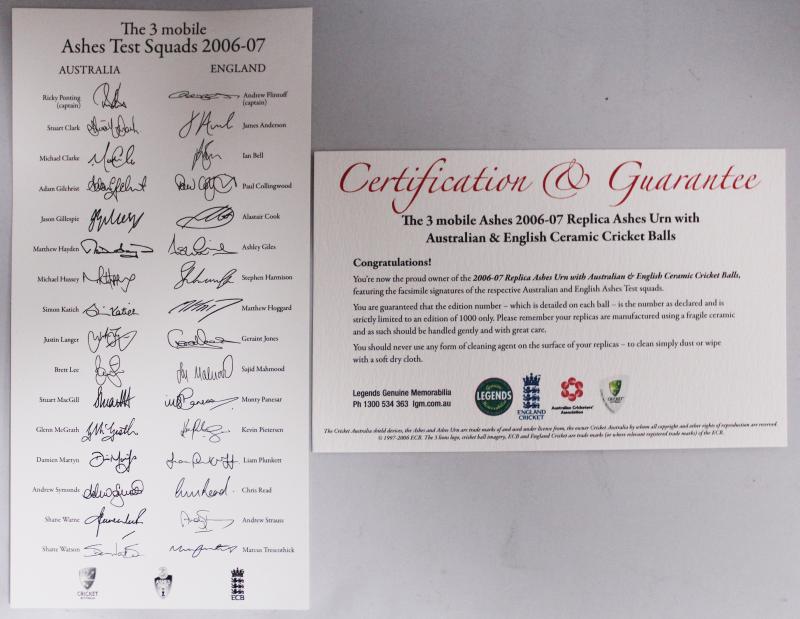 The 3 mobile
Ashes Test Squads 2006-07
AUSTRALIA ENGLAND
Ricky Ponting (captain) Andrew Flintoff (captain)
Stuart Clark James Anderson
Michael Clarke Ian Bell
Adam Gilchrist Paul Collingwood
Jason Gillespie Alastair Cook
Matthew Hayden Ashley Giles
Michael Hussey Stephen Harmison
Simon Katich Matthew Hoggard
Justin Langer Geraint Jones
Brett Lee Sajid Mahmood
Stuart MacGill Monty Panesar
Glenn McGrath Kevin Pietersen
Damien Martyn Liam Plunkett
Andrew Symonds Chris Read
Shane Warne Andrew Strauss
Shane Watson Marcus Trescothick
CRICKET
3
ECB
Certification & Guarantee
The 3 mobile Ashes 2006-07 Replica Ashes Urn with
Australian & English Ceramic Cricket Balls
Congratulations!
You're now the proud owner of the 2006-07 Replica Ashes Urn with Australian & English Ceramic Cricket Balls,
featuring the facsimile signatures of the respective Australian and English Ashes Test squads.
You are guaranteed that the edition number – which is detailed on each ball – is the number as declared and is
strictly limited to an edition of 1000 only. Please remember your replicas are manufactured using a fragile ceramic
and as such should be handled gently and with great care.
You should never use any form of cleaning agent on the surface of your replicas – to clean simply dust or wipe
with a soft dry cloth.
Legends Genuine Memorabilia
Ph 1300 534 363 lgm.com.au
LEGENDS
ENGLAND
CRICKET
Australian Cricketers'
Association
CRICKET
The Cricket Australia shield devices, the Ashes and Ashes Urn are trade marks of and used under license from, the owner Cricket Australia by whom all copyright and other rights of reproduction are reserved.
© 1997-2006 ECB. The 3 lions logo, cricket ball imagery, ECB and England Cricket are trade marks (or where relevant registered trade marks) of the ECB.